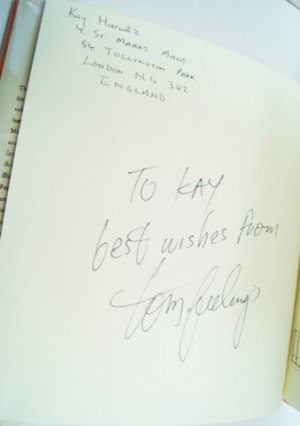 Kay Hurwitz
4, St. MARKS MEWS
54, TOLLINGTON PARK
LONDON N4 3
ENGLAND.
TO KAY
best wishes from
tom feelings